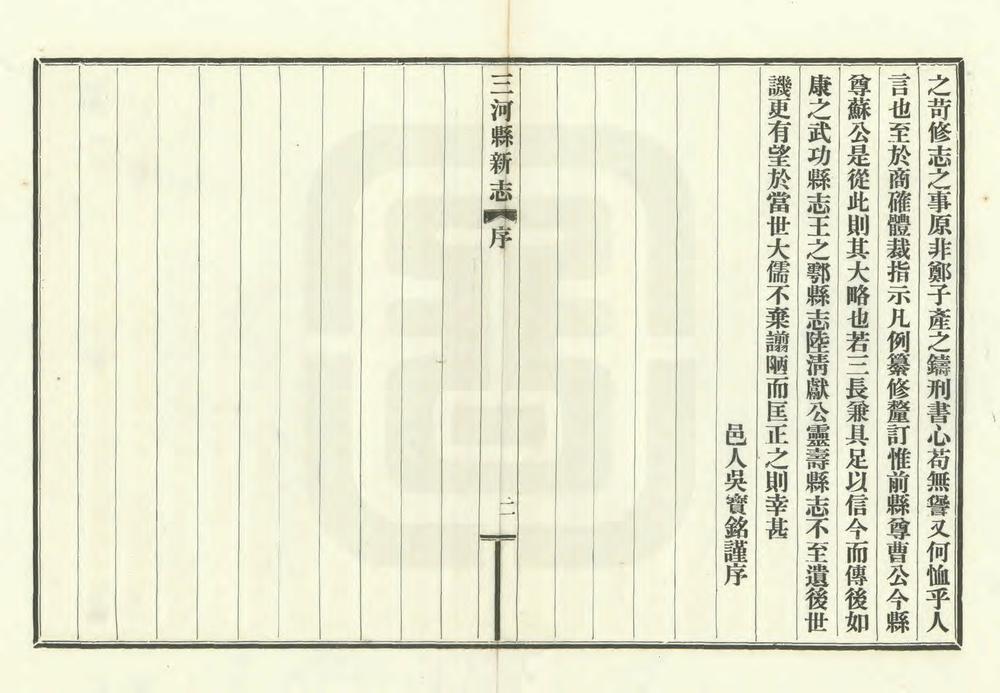 之苛修志之事原非鄭子產之鑄刑書心苟無諐又何恤乎人
言也至於商確體裁指示凡例纂修釐訂惟前縣尊曹公今縣
尊蘇公是從此則其大略也若三長兼具足以信今而傳後如
康之武功縣志王之鄠縣志陸清獻公靈壽縣志不至遺後世
譏更有望於當世大儒不棄譾陋而匡正之則幸甚
邑人吳寶銘謹序
三河縣新志 序
二